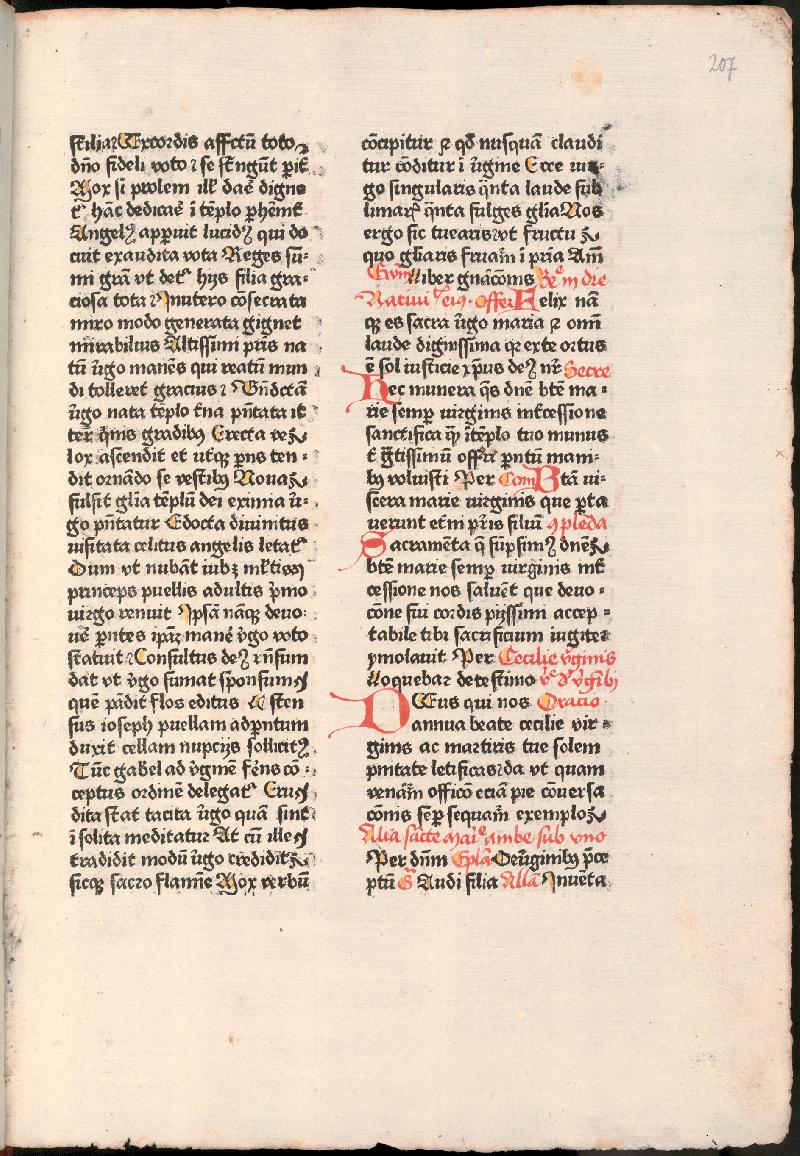 207
sterilitaꝭ Ex cordis affctū toto
dño fideli voto ꝛ se strīgūt ꝑit̄
Mox si prolem ill' daēt digne
t̄ hāc dedicarēt ī tēplo ꝑhēnit̄
Angelꝰ apparuit lucidꝰ qui do
cuit exaudita vota Reges su-
mi grā vt det̄ hijs filia gra-
ciosa tota ꝛ Inutero cōsecrata
miro modo generata gignet
mirabilius Altissimi pr̄is na
tū v̄go manēs qui reatū mun
di tolleret gracius ꝛ Bn̄dctā
v̄go nata tēplo t̄na pn̄tata it̄
ter q̄nis gradibꝰ Erecta
ascendit et vtqꝫ ꝑns ten-
dit ornādo se vestibꝰ Nova
fulsit gl̄ia tēplū dei eximia v̄-
go pn̄tatur Edocta divinitus
visitata celitus angelis letat̄
Dum vt nubāt iubꝫ
princeps puellis adultis p̄mo
virgo renuit Ipsā nāqꝫ devo-
uēt ꝑntes manēt v̄go voto
statuit ꝛ Consultus deꝰ rn̄sum
dat vt v̄go sumat sponsum
quē pādit flos editus Osten
sus ioseph puellam adpn̄tum
duxit cellam nupcijs sollicitꝰ
Tūc gabel ad v̄gīnē fēns cō-
ceptus ordinē delegat̄
dita stat tacita v̄go quā sint
ī solita meditatur At cū ille
tradidit modū v̄go credidit
sicqꝫ sacro flamīne Mox verbū
cōcipitur ꝛ qd̄ nusquā claudi
tur cōditur ī v̄gine Ecce vir-
go singularis q̄nta laude sub
limaris q̄nta fulges gl̄ia Nos
ergo sic tuearis vt fructu
quo gl̄iaris fruam̄ ī pr̄ia Am̄
Ewm̄ Liber gn̄acōnis Re̊ in die
Nativi t̄e eiꝰ Offer Felix nā
qꝫ es sacra v̄go maria ꝛ omī
laude dignissima qꝛ ex te ortus
ē sol iusticie xp̄us deꝰ nr̄ Secre
Hec munera qs̄ dn̄e btē ma-
rie semꝑ virginis īt̄cessione
sanctifica q̄ ī tēplo tuo munus
t̄ gr̄tissimū offerri ꝑntū mani-
bꝰ voluisti Per Com Btā vi-
scera marie virginis que ꝑta
verunt et̄ni pr̄is filiū ꝯpleda
Sacramēta q̄ sūpsimꝰ dn̄e
btē marie semꝑ virginis īt̄
cessione nos salvēt que devo-
cōne sui cordis pijssimi accep-
tabile tibi sacrificium iugiter
ymolavit Per Cecilie v̄ginis
Loquebar de testimo v̊e d̄ v̄gibꝰ
Deus qui nos Oracio
annua beate cecilie vir-
ginis ac martiris tue solem
pnitate letificas da vt quam
venām̄ officō eciā pie cōversa
cōnis semꝑ sequam̄ exemplo
Alia sācte mai̊e ambe sub vno
Per dnm̄ Epl̄a De v̄ginibꝰ p̄ce
ptū G̊ Audi filia All̄a Invēta